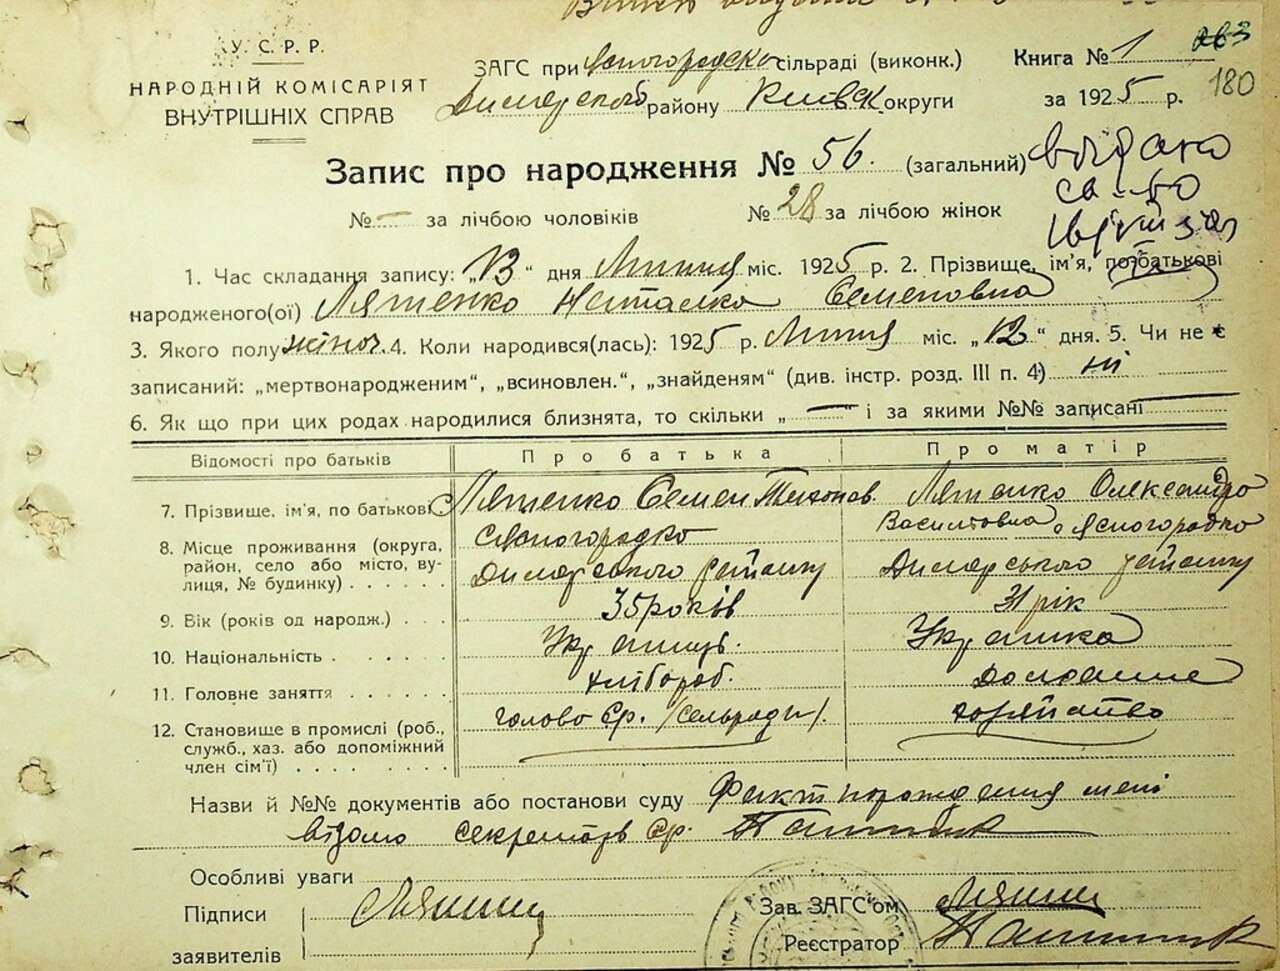 У.С.Р.Р.
НАРОДНІЙ КОМІСАРІЯТ
ВНУТРІШНІХ СПРАВ
ЗАГС при Ясногородско сільраді (виконк.)
Димерского району Київск округи
Книга № 1
за 1925 р.
180
Запис про народження № 56. (загальний)
№ — за лічбою чоловіків № 28 за лічбою жінок
видано
св-во
1. Час складання запису: „13“ дня Липня міс. 1925 р. 2. Прізвище, ім'я, по батькові
народженого(ої) Ляшенко Наталка Семеновна
3. Якого полу жіноч. 4. Коли народився(лась): 1925 р. Липня міс. „12“ дня. 5. Чи не є
записаний: „мертвонародженим“, „всиновлен.“, „знайденям“ (див. інстр. розд. III п. 4) ні
6. Як що при цих родах народилися близнята, то скільки „ — “ і за якими №№ записані —
Відомості про батьків Про батька Про матір
7. Прізвище, ім'я, по батькові Ляшенко Семен Тихонов. Ляшенко Олександро Василівна
8. Місце проживання (округа, район, село або місто, вулиця, № будинку) с Ясногородко Димерського району Ясногородко Димерського району
9. Вік (років од народж.) 35 років 31 рік
10. Національність Українець. Українка
11. Головне заняття хлібороб. Домашне
12. Становище в промислі (роб., служб., хаз. або допоміжний член сім'ї) голово Ср. /сельради/. хозяйство
Назви й №№ документів або постанови суду Факт порождения мені
відомо секретарь Ср.
Особливі уваги
Підписи
заявителів
Зав. ЗАГС'ом
Реєстратор